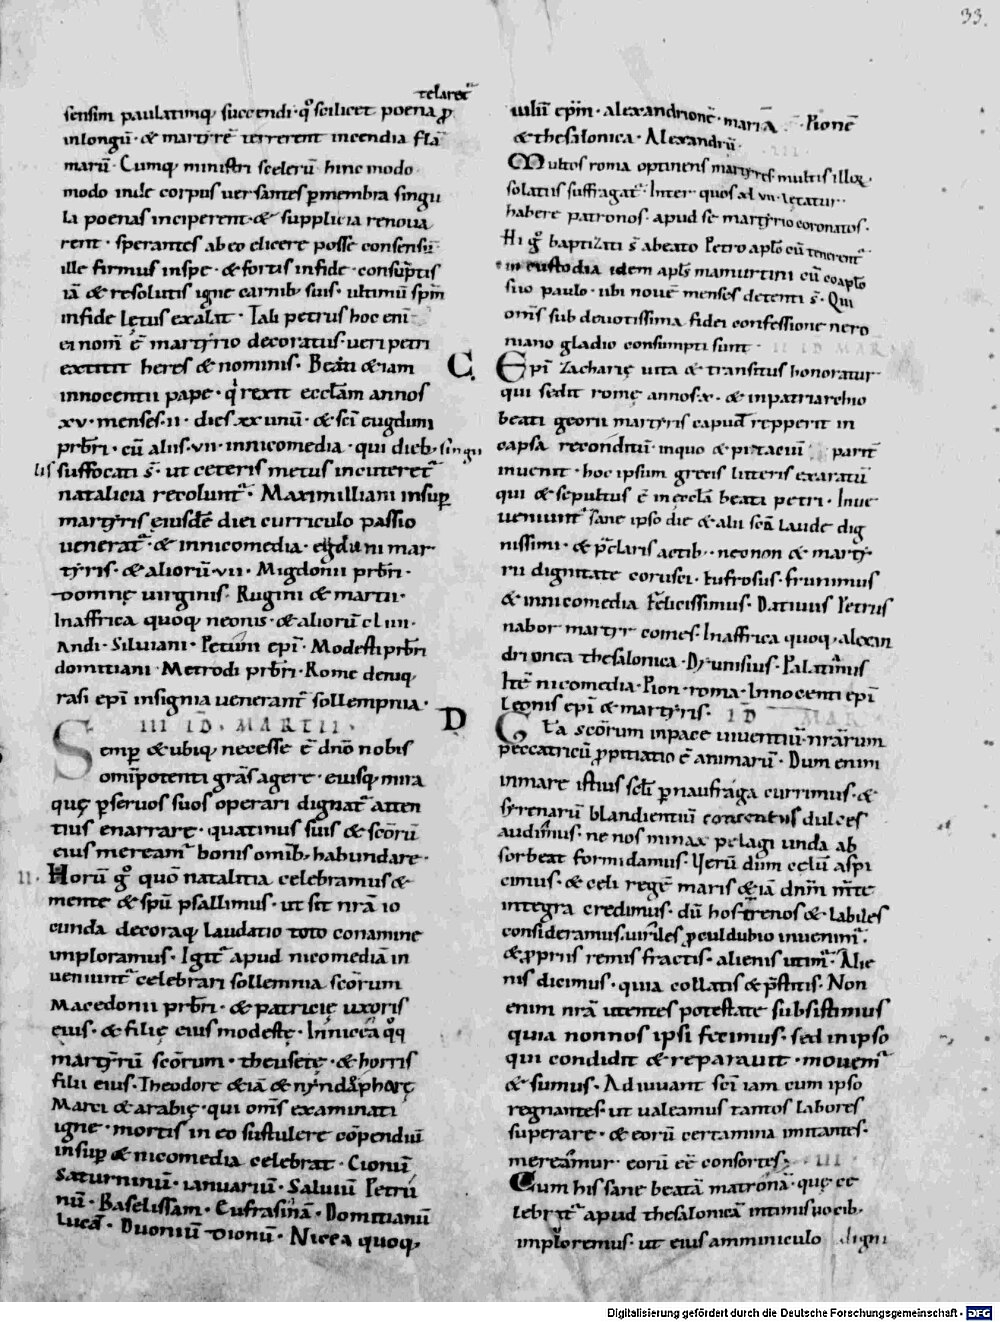 33.
telaretˀ
sensim paulatimq, succendi· qͦ scilicet poena ꝓ
inlongū· & martẏrē terrerent incendia flā
marū· Cumq, ministri scelerū hinc modo
modo inde corpus uersantes ꝑmembra singu
la poenas inciperent· & supplicia renoua
rent· sperantes ab eo elicere posse consensū·
ille firmus inspe· & fortis infide· consūptis
iā & resolutis igne carnib, suis· ultimū spm̄
infide lętus exalat· Tali petrus hoc eni
ei nom̄ ē martẏrio decoratus· ueri petri
extitit heres & nominis· Beati & iam
C
innocentii pape· q' rexit eccłam annos
xv· menses· ii· dies· xx unū· & sc̄i eugdini
prb̄ri· cū aliis· vii· innicomedia· qui dieb, singu
lis suffocati s̄· ut ceteris metus incuteretˀ
natalicia recoluntˀ· Maximilliani insuꝑ
martẏris eiusdē diei curriculo passio
ueneratˀ· & innicomedia· egduni mar
tẏris· & aliorū· vii· Migdonii prb̄ri·
Domnę uirginis· Rugini & martii·
Inaffrica quoq, neonis· & aliorū cliiii·
Andi· Siluiani· Petuni epī· Modesti prb̄ri
domitiani· Metrodi prb̄ri· Rome deniq,
rasi epī insignia uenerantˀ sollempnia·
IIII ID· MARTII·
D
Semꝑ & ubiq, necesse ē dn̄o nobis
omīpotenti grās agere· eiusq, mira
quę ꝑseruos suos operari dignatˀ atten
tius enarrare· quatinus suis & sc̄orū
eius mereamˀ bonis omib, habundare·
II· Horū gͦ quō natalitia celebramus &
mente & spū psallimus· ut sit nrā io
cunda decoraq, laudatio toto conamine
imploramus· Igitˀ apud nicomediā in
ueniuntˀ celebrari sollemnia sc̄orum
Macedonii prb̄ri· & patricię uxoris
eius· & filię eius modestę· Innicea qͦq
martẏrū sc̄orum· theusetę· & horris
filii eius· Theodore & iā & nẏndophorę
Marci & arabię· qui om̄s examinati
igne· mortis in eo sustulere cōpendiū
insuꝑ & nicomedia celebrat· Cionū
Saturninū· ianuariū· Saluiū Petrū
nū· Baselissam· Eufrasinā· Domitianū
Lucā· Duoniū Dionū· Nicea quoq,
iuliū epm̄· alexandrionē· mariā· Pionē
& thesalonica· Alexandrū·
Multos roma optinens martẏres multis illoꝝ
solatiis suffragatˀ· Inter quos ad vii· lętatur
habere patronos· apud se martẏrio coronatos·
Hi gͦ baptizati s̄ abeato Petro aplō cū tenerentˀ
in custodia idem apls mamurtini cū coaplō
suo paulo· ubi nouē menses detenti s̄· Qui
om̄s sub deuotissima fidei confessione nero
niano gladio consumpti sunt·
Epī Zacharię uita & transitus honoratur
qui sedit romę annos· x· & inpatriarchio
beati georii martẏris caput repperit in
capsa reconditū· inquo & pitaciū parit̄
inuenit· hoc ipsum grecis litteris exaratū
qui & sepultus ē ineccła beati petri· Inue
ueniuntˀ sane ipso die & alii sc̄a laude dig
nissimi· & p̄claris actib,· neonon & martẏ
rii dignitate corusci· Eufrosus· frunimus
& innicomedia Felicissimus· Datiuus Petrus
nabor martẏr comes· Inaffrica quoq, alexan
dri onca thesalonica· Dẏunisius· Palatinus
Itē nicomedia· Pion· roma· Innocenti epī
Leonis epī & martẏris· ID MAR
Cęta sc̄orum inpace uiuentiū· nrārum
peccatricū ꝓpitiatio ē animarū· Dum enim
inmare istius scłi ꝑnaufraga currimus· &
sẏrenarū blandientiū concentus dulces
audimus· ne nos minax pelagi unda ab
sorbeat formidamus· Uerū dum cęlū aspi
cimus· & celi regē maris & iā dn̄m m̄te
integra credimus· dū hos trenos & labiles
consideramus· uiriles ꝓculdubio inuenimˀ·
& ꝓpriis remis fractis· alienis utimˀ· Alie
nis dicimus· quia collatis & p̄stitis· Non
enim nrā utentes potestate subsistimus
quia nonnos ipsi fecimus· sed inipso
qui condidit & reparauit· mouemˀ
& sumus· Adiuuant sc̄i iam cum ipso
regnantes· ut ualeamus tantos labores
superare· & eorū certamina imitantes·
mereamur· eorū eē consortes· III
Cum his sane beatā matronā· quę ce
lebratˀ apud thesalonicā intimis uocib,
imploremus· ut eius amminiculo digni
Digitalisierung gefördert durch die Deutsche Forschungsgemeinschaft - DFG